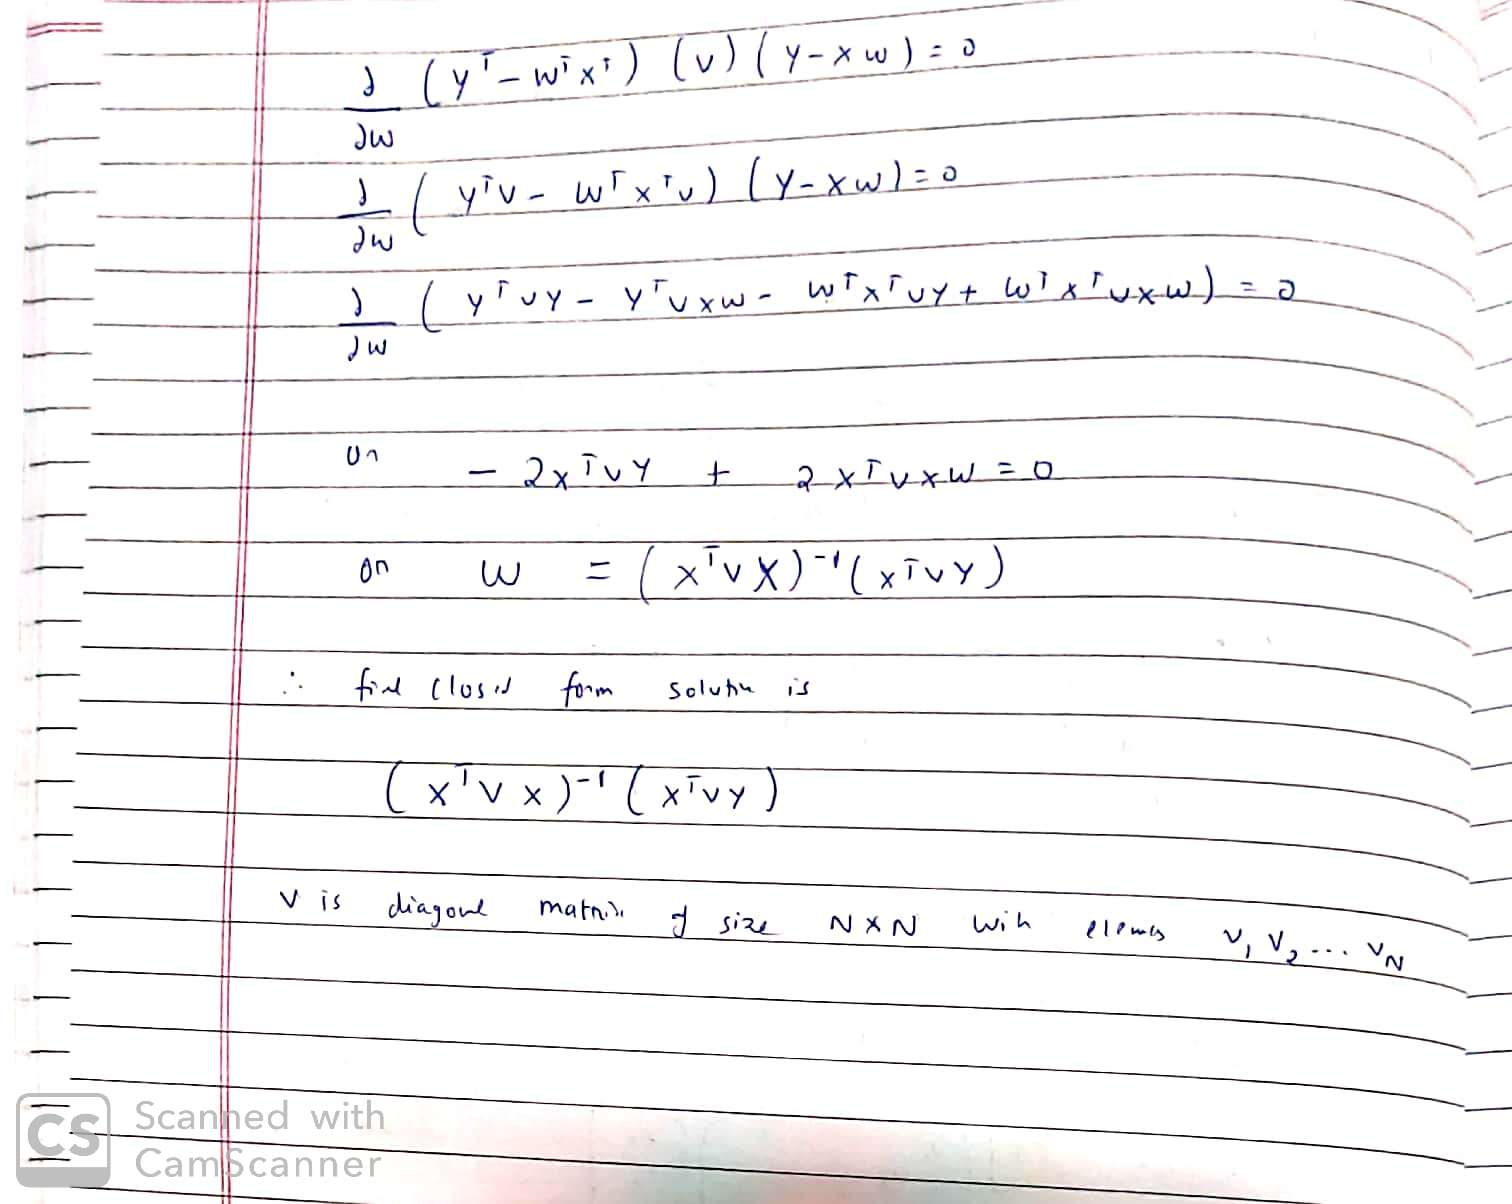 ∂/∂w (Yᵀ - wᵀxᵀ) (v) (Y - xw) = 0
∂/∂w (Yᵀv - wᵀxᵀv) (Y - xw) = 0
∂/∂w (Yᵀvy - Yᵀvxw - wᵀxᵀvy + wᵀxᵀvxw) = 0
or - 2xᵀvy + 2xᵀvxw = 0
or w = (xᵀvx)⁻¹(xᵀvy)
∴ closed form solution is
(xᵀvx)⁻¹(xᵀvy)
v is diagonal matrix of size N×N with v₁ v₂ ... vN
CS Scanned with
CamScanner